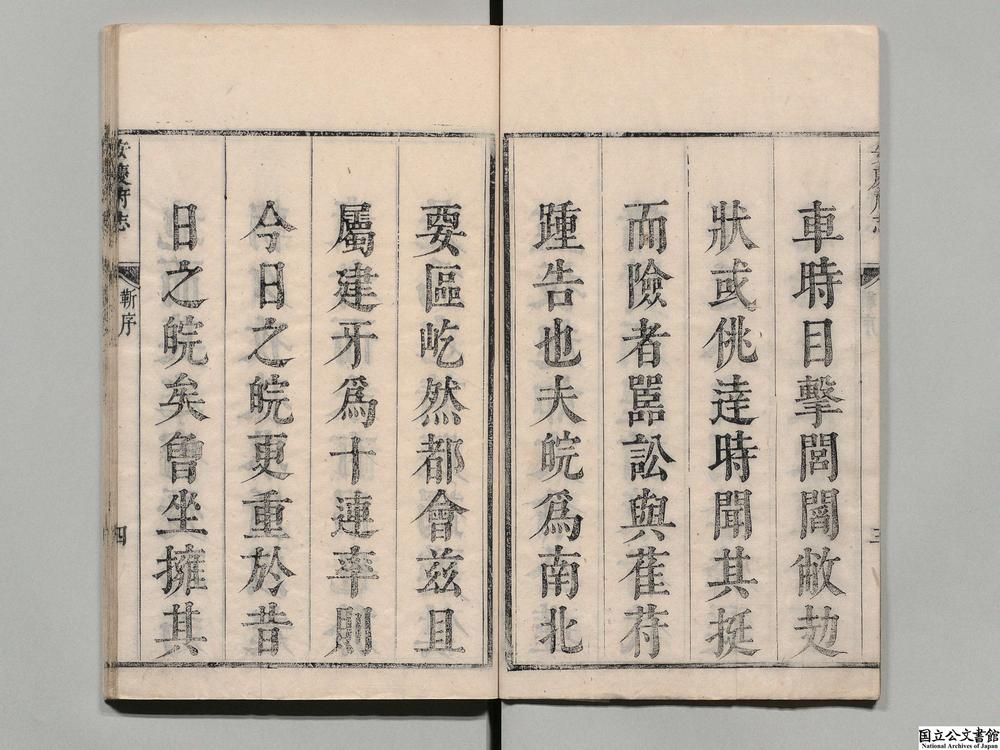 車時目擊閭閻敝
狀或佻達時聞其挺
而險者嚚訟與萑苻
踵告也夫皖爲南北
要區屹然都會兹且
屬建牙爲十連率則
今日之皖更重於昔
日之皖矣曾坐擁其
安慶府志
靳序
四
国立公文書館
National Archives of Japan